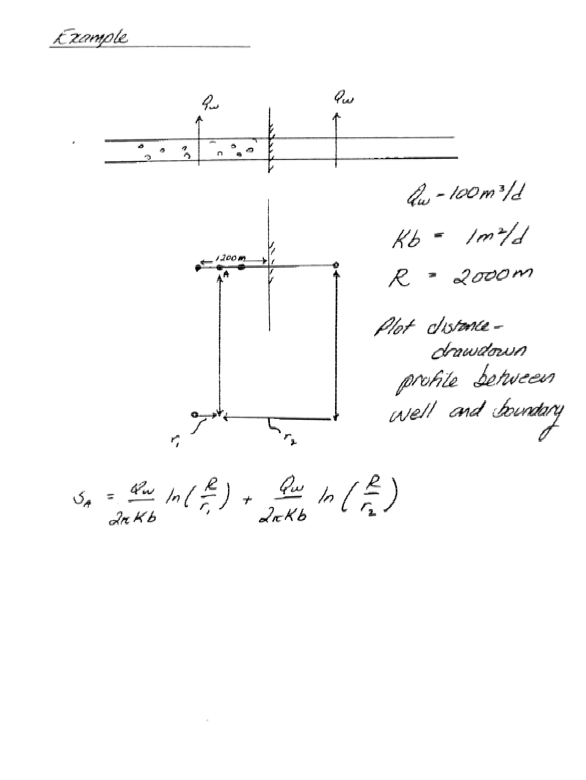 Example
Qw Qw
Qw - 100 m³/d
Kb = 1 m²/d
R = 2000m
1200m
A
Plot distance-
drawdown
profile between
well and boundary
r₁ r₂
S_A = Qw/2πKb ln(R/r₁) + Qw/2πKb ln(R/r₂)